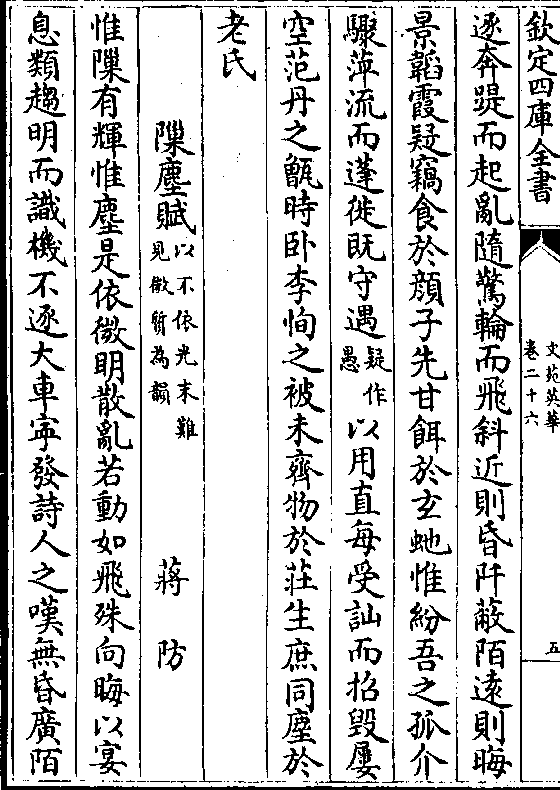 欽定四庫全書
文苑英華
卷二十六
五
逐奔踶而起亂隨驚輪而飛斜近則昏阡蔽陌逺則晦
景韜霞疑竊食於顔子先甘餌於玄虵惟紛吾之孤介
驟萍流而蓬徙既守遇疑作愚以用直每受訕而招毀屢
空范丹之甑時卧李恂之被未齊物於莊生庶同塵於
老氏
隟塵賦以不依光末難見微質為韻 蔣防
惟隟有輝惟塵是依微明散亂若動如飛殊向晦以宴
息類趨明而識機不逐大車寜發詩人之嘆無昏廣陌